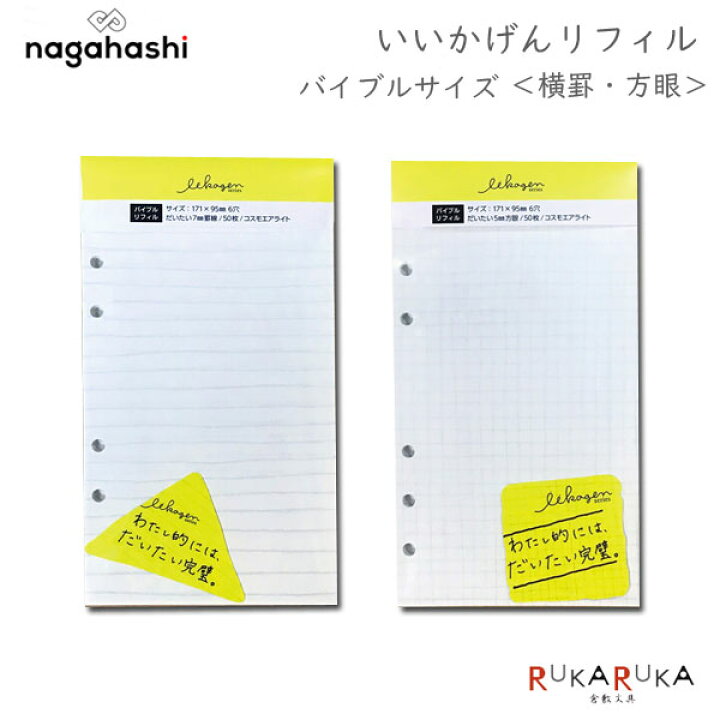 nagahashi
いいかげんリフィル
バイブルサイズ ＜横罫・方眼＞
iikagen
series
バイブル
リフィル
サイズ：171×95㎜ 6穴
だいたい7㎜罫線/50枚/コスモエアライト
iikagen
series
わたし的には、
だいたい完璧。
iikagen
series
バイブル
リフィル
サイズ：171×95㎜ 6穴
だいたい5㎜方眼/50枚/コスモエアライト
iikagen
series
わたし的には、
だいたい完璧。
RUKARUKA
倉敷文具